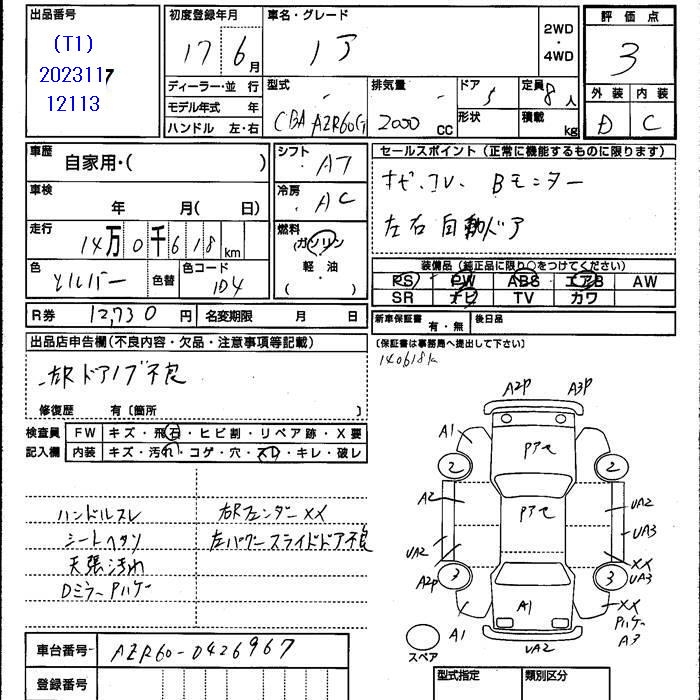 出品番号
(T1)
2023117
12113
初度登録年月
17 6月
車名・グレード
ノア
2WD
・
4WD
評価点
3
ディーラー・並 行
モデル年式 年
ハンドル 左・右
型式
CBA AZR60G
排気量
2000 cc
ドア
5
形状
定員 8 人
積載 kg
外装 内装
D C
車歴
自家用・( )
車検
年 月( 日)
走行
14万0千618km
色
シルバー
色替
色コード
104
シフト
AT
冷房
AC
燃料
ガソリン
軽・油
( )
セールスポイント(正常に機能するものに限ります)
ナビ、TV、Bモニター
左右自動ドア
装備品(純正品に限り○をつけてください)
PS PW ABS エアB AW
SR ナビ TV カワ
R券 12,730 円
名変期限 月 日
新車保証書 有・無
後日品
(保証書は事務局へ提出して下さい)
140618k
出品店申告欄(不良内容・欠品・注意事項等記載)
右Rドアノブ不良
修復歴 有〔箇所 〕
検査員 FW キズ・飛石・ヒビ割・リペア跡・X要
記入欄 内装 キズ・汚れ・コゲ・穴・スレ・キレ・破レ
ハンドルスレ
シートヘタリ
天張汚れ
Dミラー Pハゲ
右Rフェンダー XX
左パワースライドドア不良
A2P A3P
A1
Pアセ
2 2
A2
Pアセ
UA2
UA3
UA2
XX
A2P
3 3
UA3
A1
XX
Pハゲ
A3
A1
UA2
スペア
車台番号 AZR60-0426967
登録番号
型式指定
類別区分